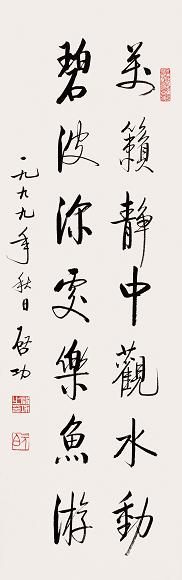 萬籟静中觀水動
碧波深處樂魚游
一九九九年秋日 启功